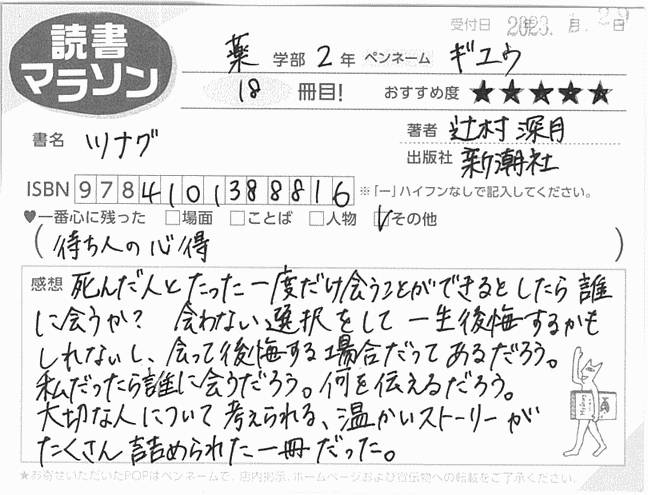 読書
マラソン
受付日 2023. 月 29日
薬 学部 2 年 ペンネーム ギユウ
18 冊目! おすすめ度 ★★★★★
書名 ツナグ
著者 辻村 深月
出版社 新潮社
ISBN 9784101388816 ※「ー」ハイフンなしで記入してください。
♥一番心に残った □場面 □ことば □人物 ☑その他
(待ち人の心得)
感想 死んだ人とたった一度だけ会うことができるとしたら誰
に会うか? 会わない選択をして一生後悔するかも
しれないし、会って後悔する場合だってあるだろう。
私だったら誰に会うだろう。何を伝えるだろう。
大切な人について考えられる、温かいストーリーが
たくさん詰められた一冊だった。
★お寄せいただいたPOPはペンネームで、店内掲示、ホームページおよび宣伝物への転載をご了承ください。